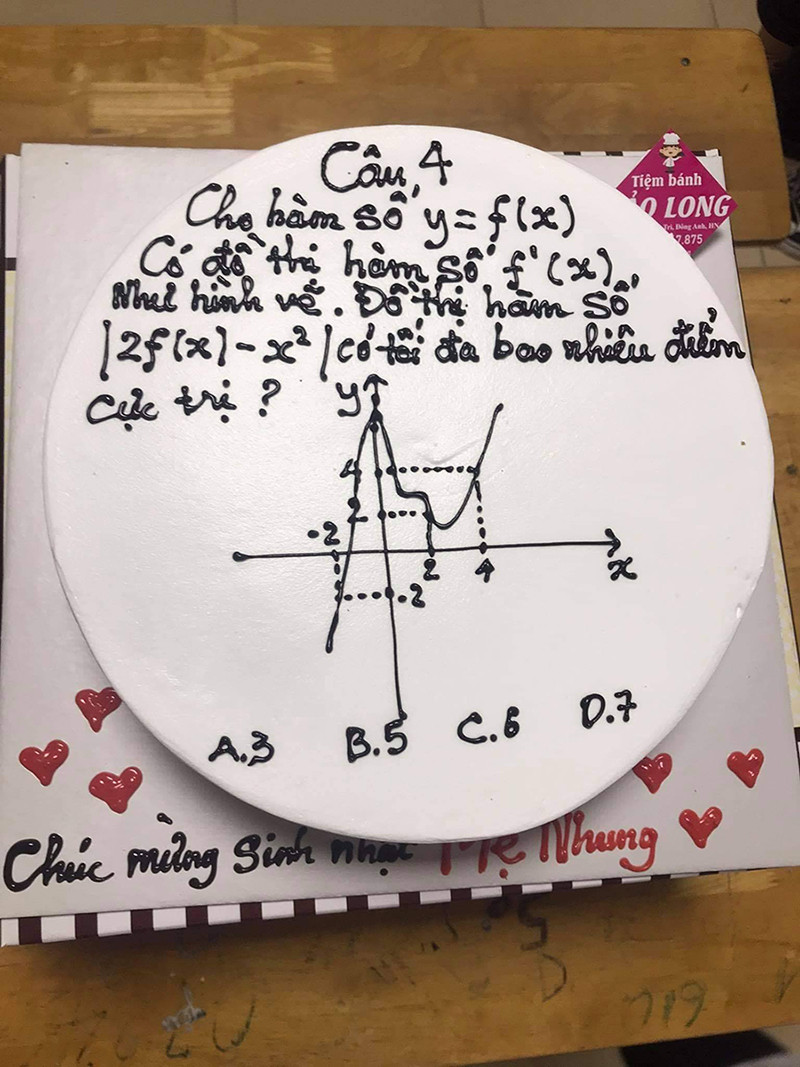 Câu 4
Cho hàm số y = f(x)
Có đồ thị hàm số f'(x)
Như hình vẽ. Đồ thị hàm số
|2f(x) - x² | có tối đa bao nhiêu điểm
cực trị ?
y
4
2
-2
2
4
x
-2
A.3 B.5 C.6 D.7
Tiệm bánh
O LONG
Trì, Đông Anh, HN
7.875
Chúc mừng Sinh nhật Mẹ Nhung